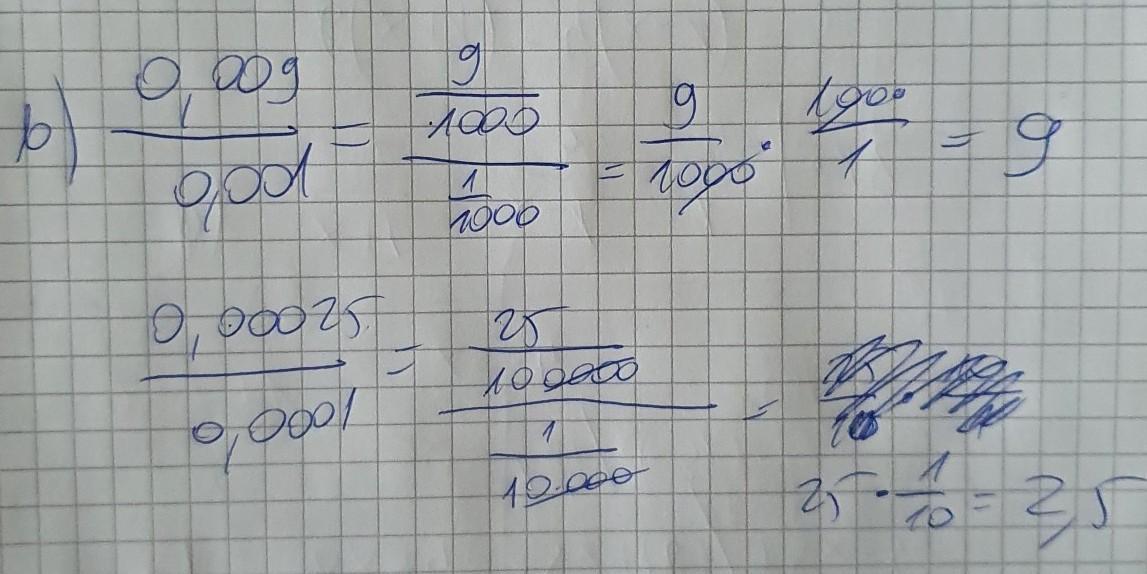 b) 0,009 / 0,001 = (9/1000) / (1/1000) = 9/1000 · 1000/1 = 9
0,00025 / 0,0001 = (25/100000) / (1/10.000) =
25 · 1/10 = 2,5